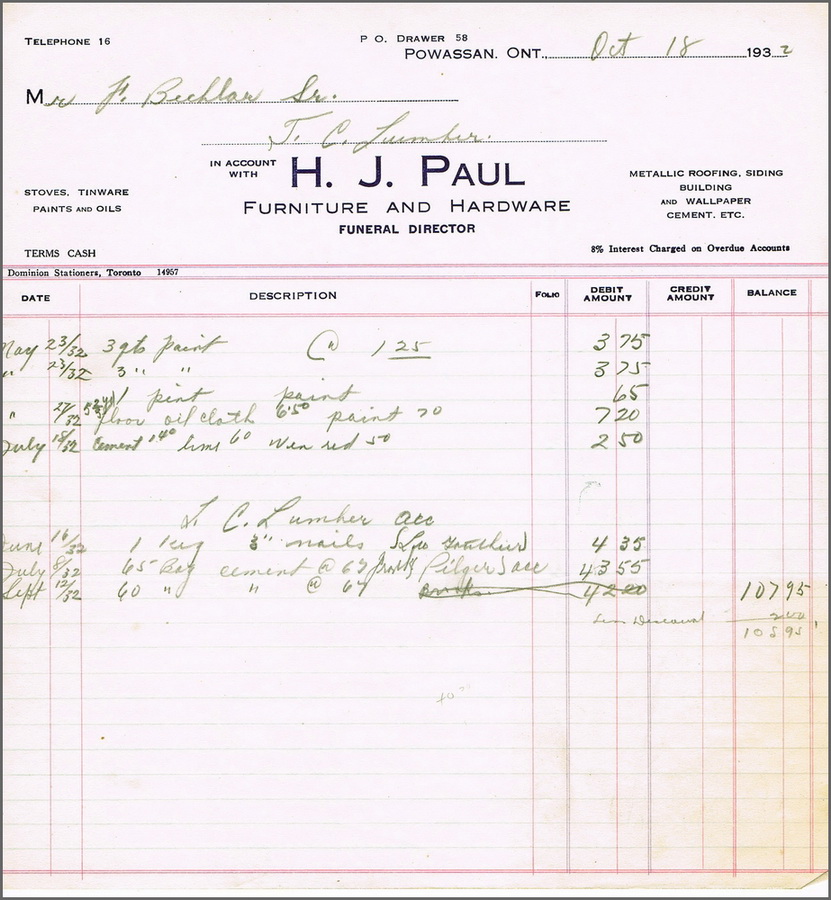 TELEPHONE 16
P O. DRAWER 58
POWASSAN. ONT., Oct 18 1932
Mr F. Bechlar Sr.
T. C. Lumber.
IN ACCOUNT WITH H. J. PAUL
FURNITURE AND HARDWARE
FUNERAL DIRECTOR
STOVES, TINWARE
PAINTS AND OILS
METALLIC ROOFING, SIDING
BUILDING
AND WALLPAPER
CEMENT. ETC.
TERMS CASH
8% Interest Charged on Overdue Accounts
Dominion Stationers, Toronto 14957
DATE DESCRIPTION FOLIO DEBIT AMOUNT CREDIT AMOUNT BALANCE
May 23/32 3 qts paint @ 1 25 3 75
" 23/32 3 " " 3 75
1 pint paint 65
" 27/32 floor oil cloth 6.50 paint 70 7 20
July 18/32 cement 1 40 lime 60 Ven red 50 2 50
T. C. Lumber acc
June 16/32 1 keg 3" nails 4 35
July 8/32 65 Bag cement @ 67 Pilger acc 43 55
Sept 12/32 60 " " @ 67 42 00 107 95
Less Discount 2 00
105 95